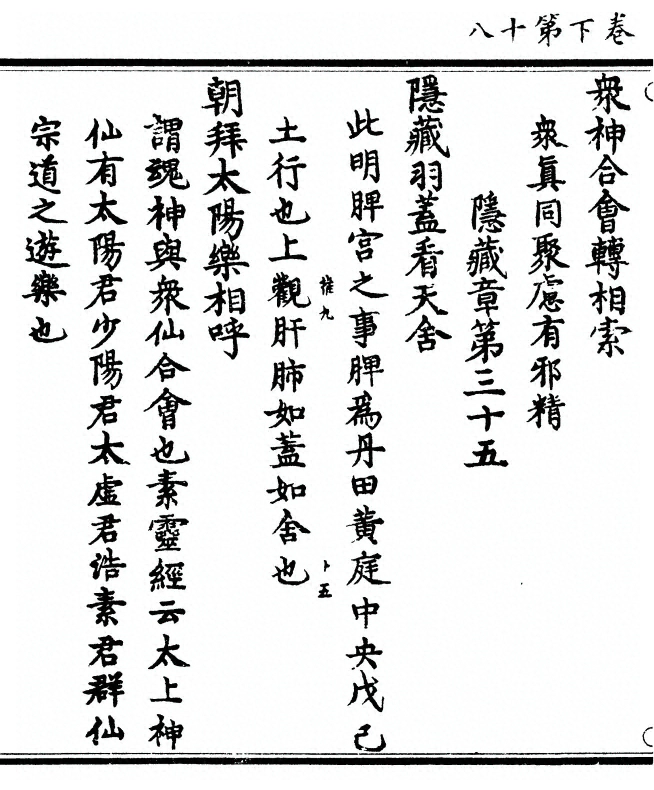 卷下第十八
衆神合會轉相索
衆真同聚慮有邪精
隱藏章第三十五
隱藏羽蓋看天舍
此明脾宮之事脾爲丹田黃庭中央戊己
土行也上觀肝肺如蓋如舍也
惟九
卜五
朝拜太陽樂相呼
謂魂神與衆仙合會也素靈經云太上神
仙有太陽君少陽君太虛君浩素君群仙
宗道之遊樂也